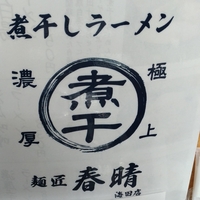 煮干しラーメン
濃厚
煮干
極上
麺匠 春晴
海田店